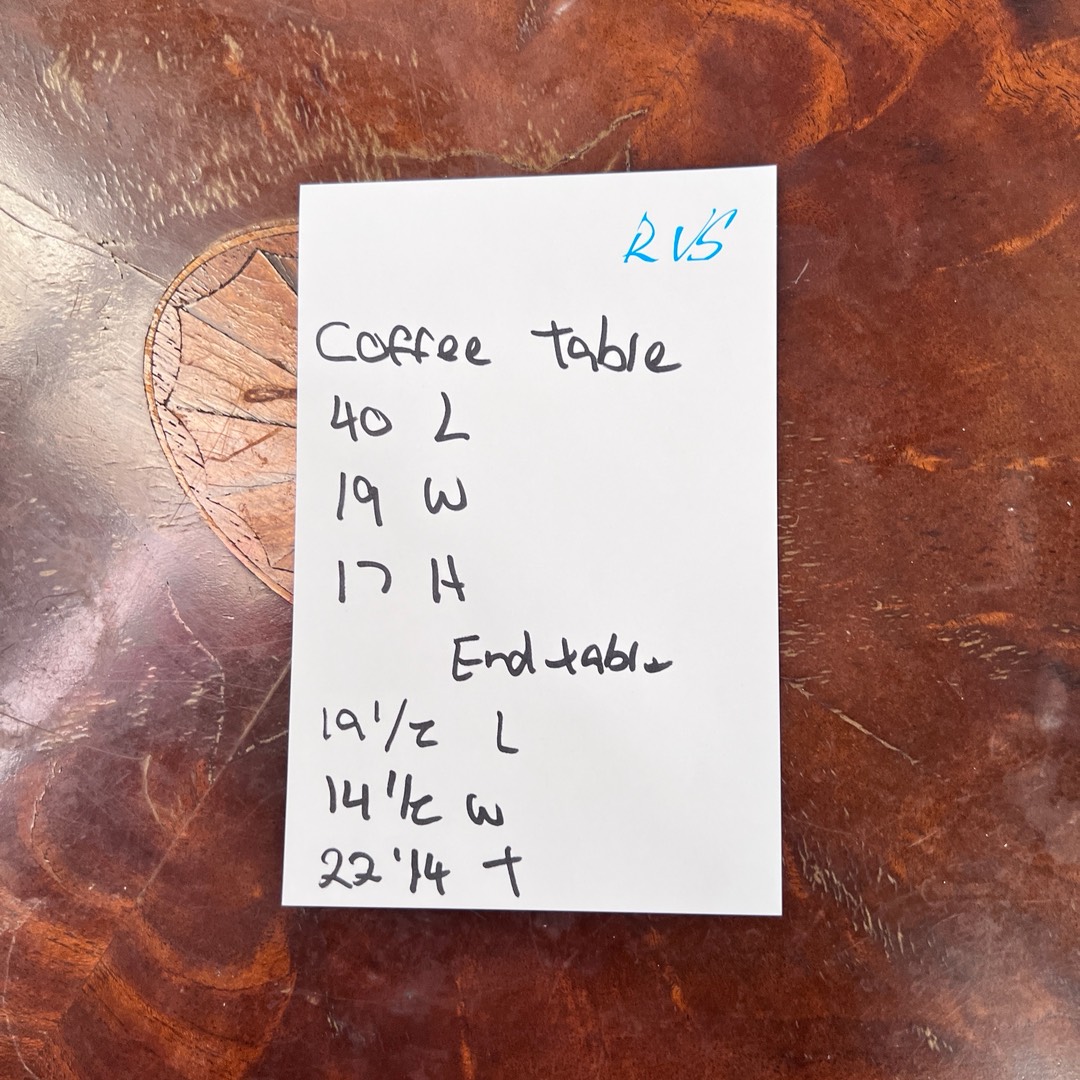 RVS
Coffee table
40 L
19 W
17 H
End table
19 1/2 L
14 1/2 W
22 1/4 T